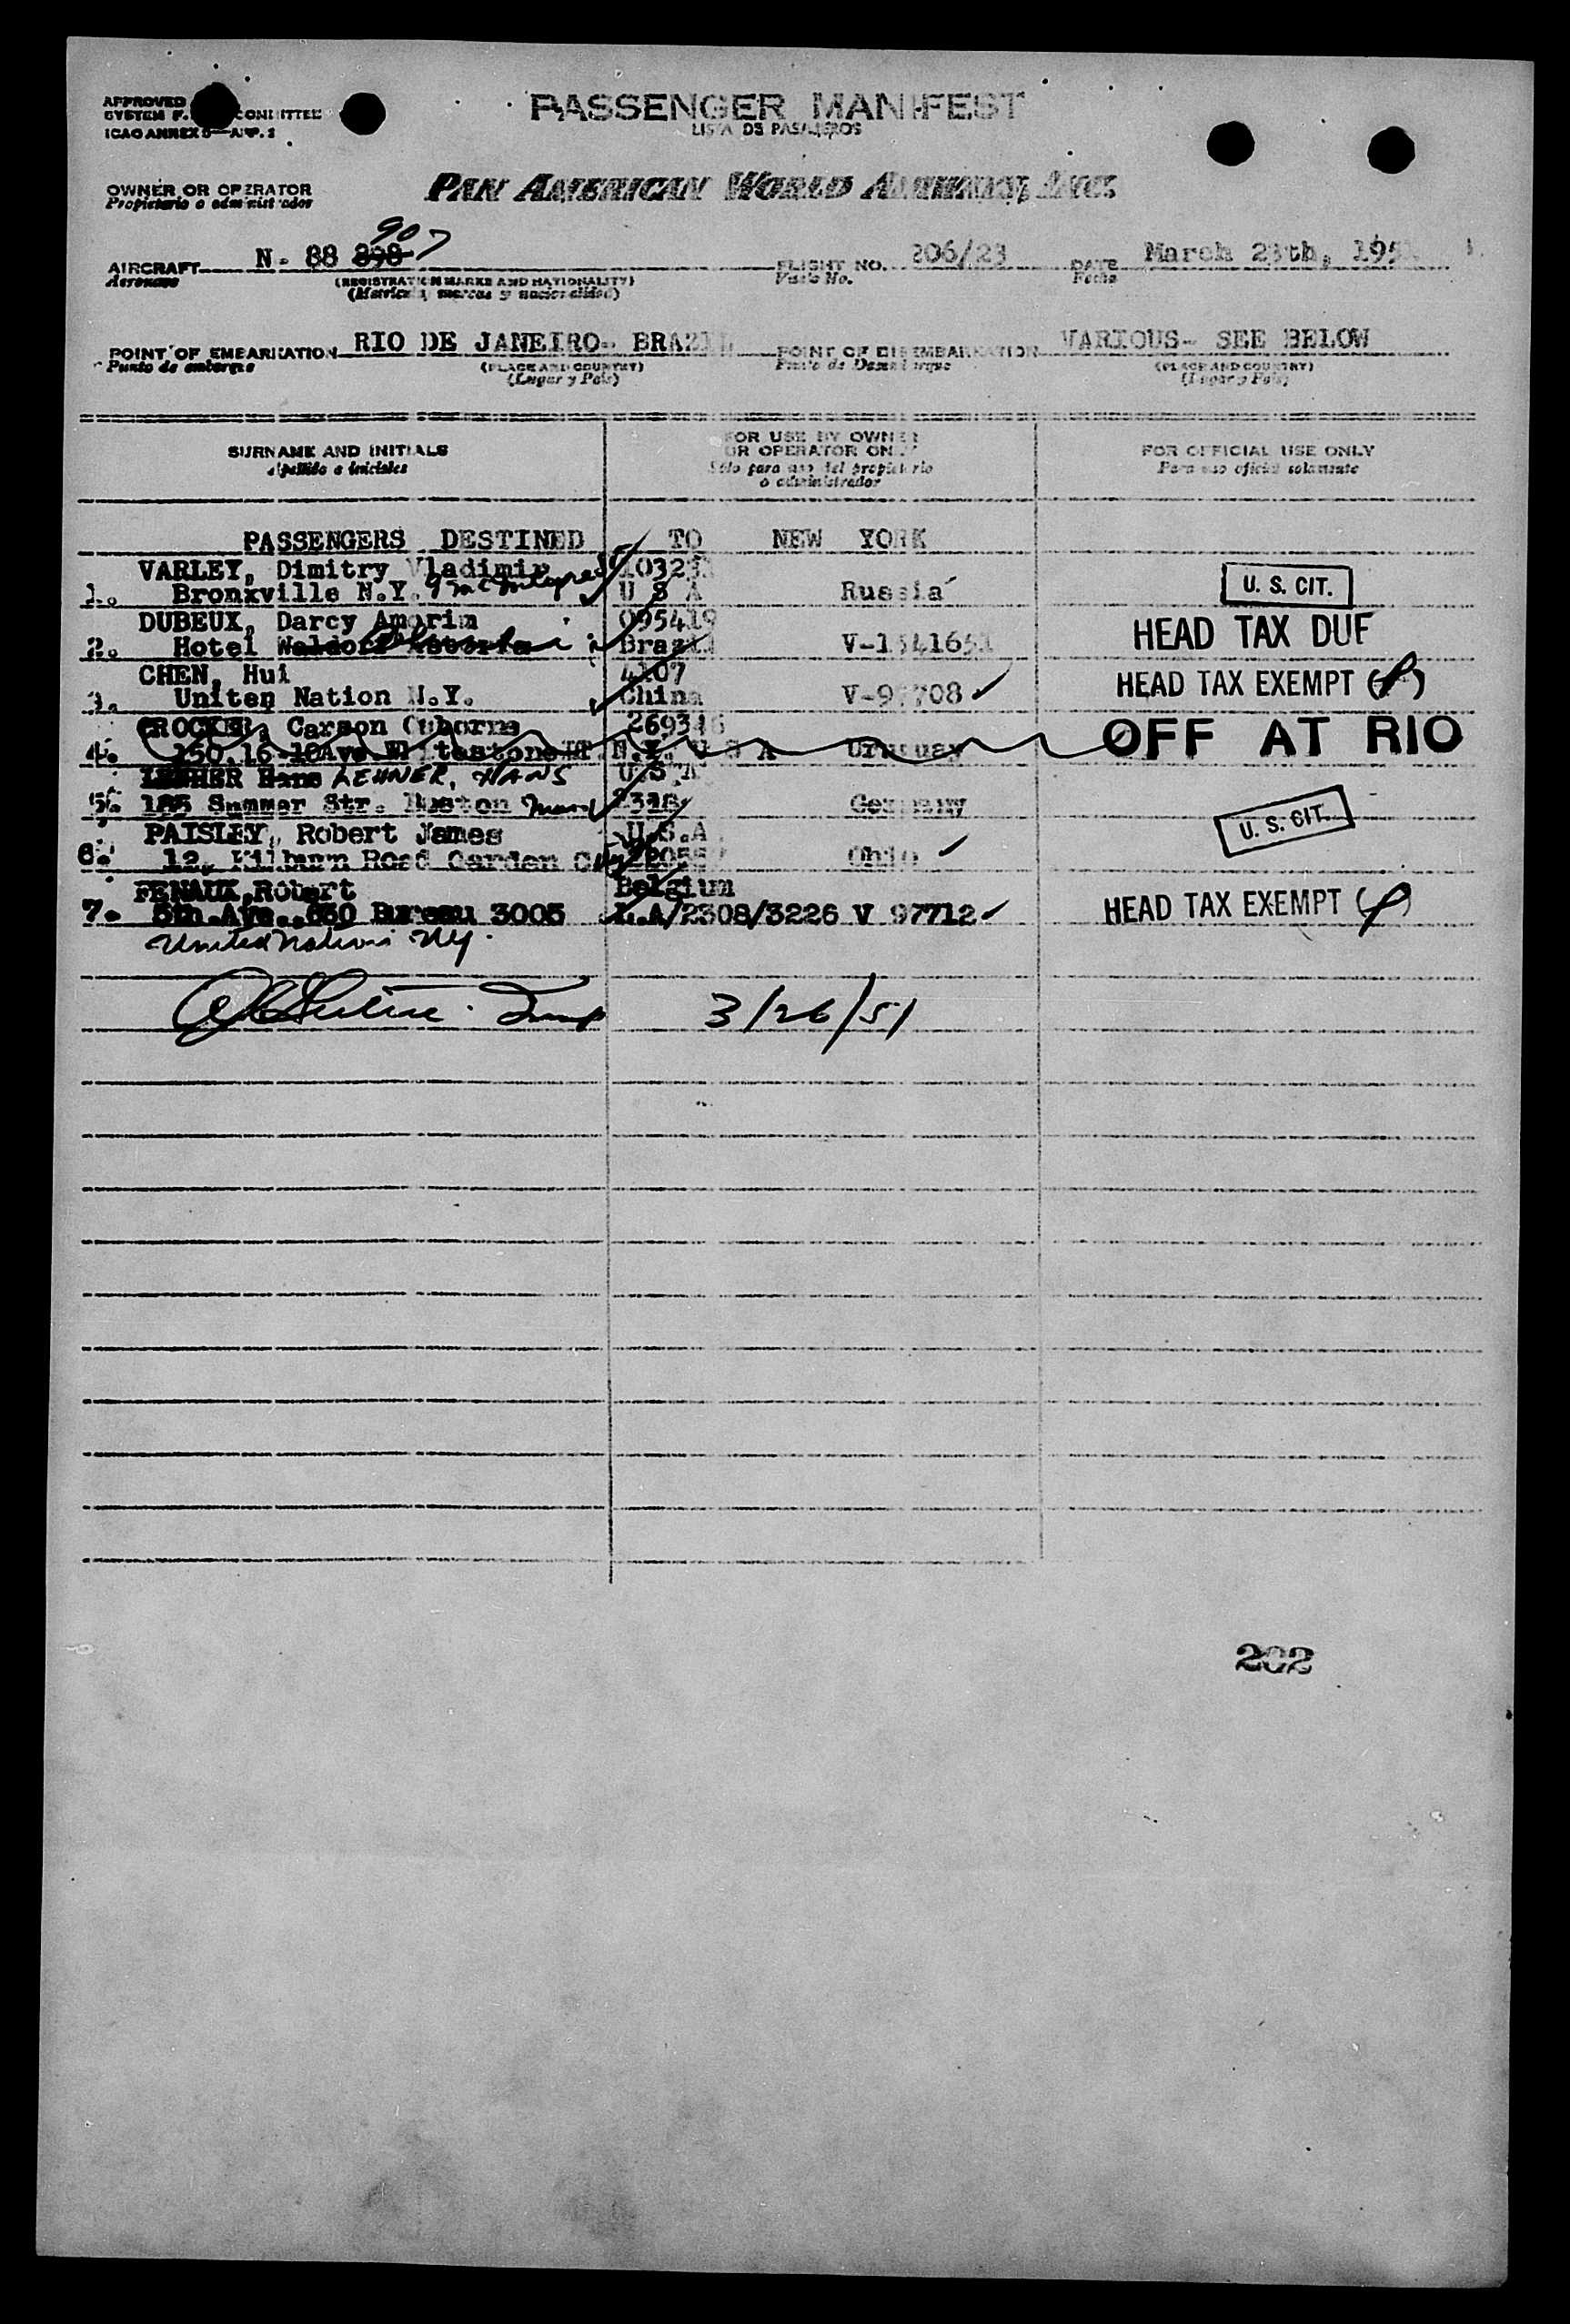 APPROVED CONMITTEE
SYSTEM F.
ICAO ANNEX 9—APP. 2
PASSENGER MANIFEST
LISTA DE PASAJEROS
OWNER OR OPERATOR
Propietario o administrador
PAN AMERICAN WORLD AIRWAYS, INC.
907
AIRCRAFT N- 88 898 FLIGHT NO. 206/23 DATE March 25th, 195
Aeronave (REGISTRATION MARKS AND NATIONALITY) Vuelo No. Fecha
(Matricula, marcas y nacionalidad)
POINT OF EMBARKATION RIO DE JANEIRO- BRAZIL POINT OF DISEMBARKATION VARIOUS- SEE BELOW
Punto de embarque (PLACE AND COUNTRY) Punto de Desembarque (PLACE AND COUNTRY)
(Lugar y Pais) (Lugar y Pais)
SURNAME AND INITIALS FOR USE BY OWNER OR OPERATOR ONLY FOR OFFICIAL USE ONLY
Apellido e iniciales Sólo para uso del propietario o administrador Para uso oficial solamente
PASSENGERS DESTINED TO NEW YORK
VARLEY, Dimitry Vladimir
1. Bronxville N.Y. U S A Russia U. S. CIT.
DUBEUX, Darcy Amorim 095419
2. Hotel Waldorf Astoria Brazil HEAD TAX DUE
CHEN, Hui 4107
3. Uniten Nation N.Y. China V-97708 HEAD TAX EXEMPT
CROCKER, Carson Osborne 269346
4. 150.16 10Ave Whitestone N.Y. U S A Uruguay OFF AT RIO
Hans LEHNER, HANS U S A
5. 185 Summer Str. Boston Mass 2318 Germany U. S. CIT.
PAISLEY, Robert James U.S.A
6. 12, Kilburn Road Garden City Ohio
FENAUX, Robert Belgium
7. 5th.Ave., 630 Bureau 3005 L.A/2308/3226 V 97712 HEAD TAX EXEMPT
United Nations NY.
3/26/51
202